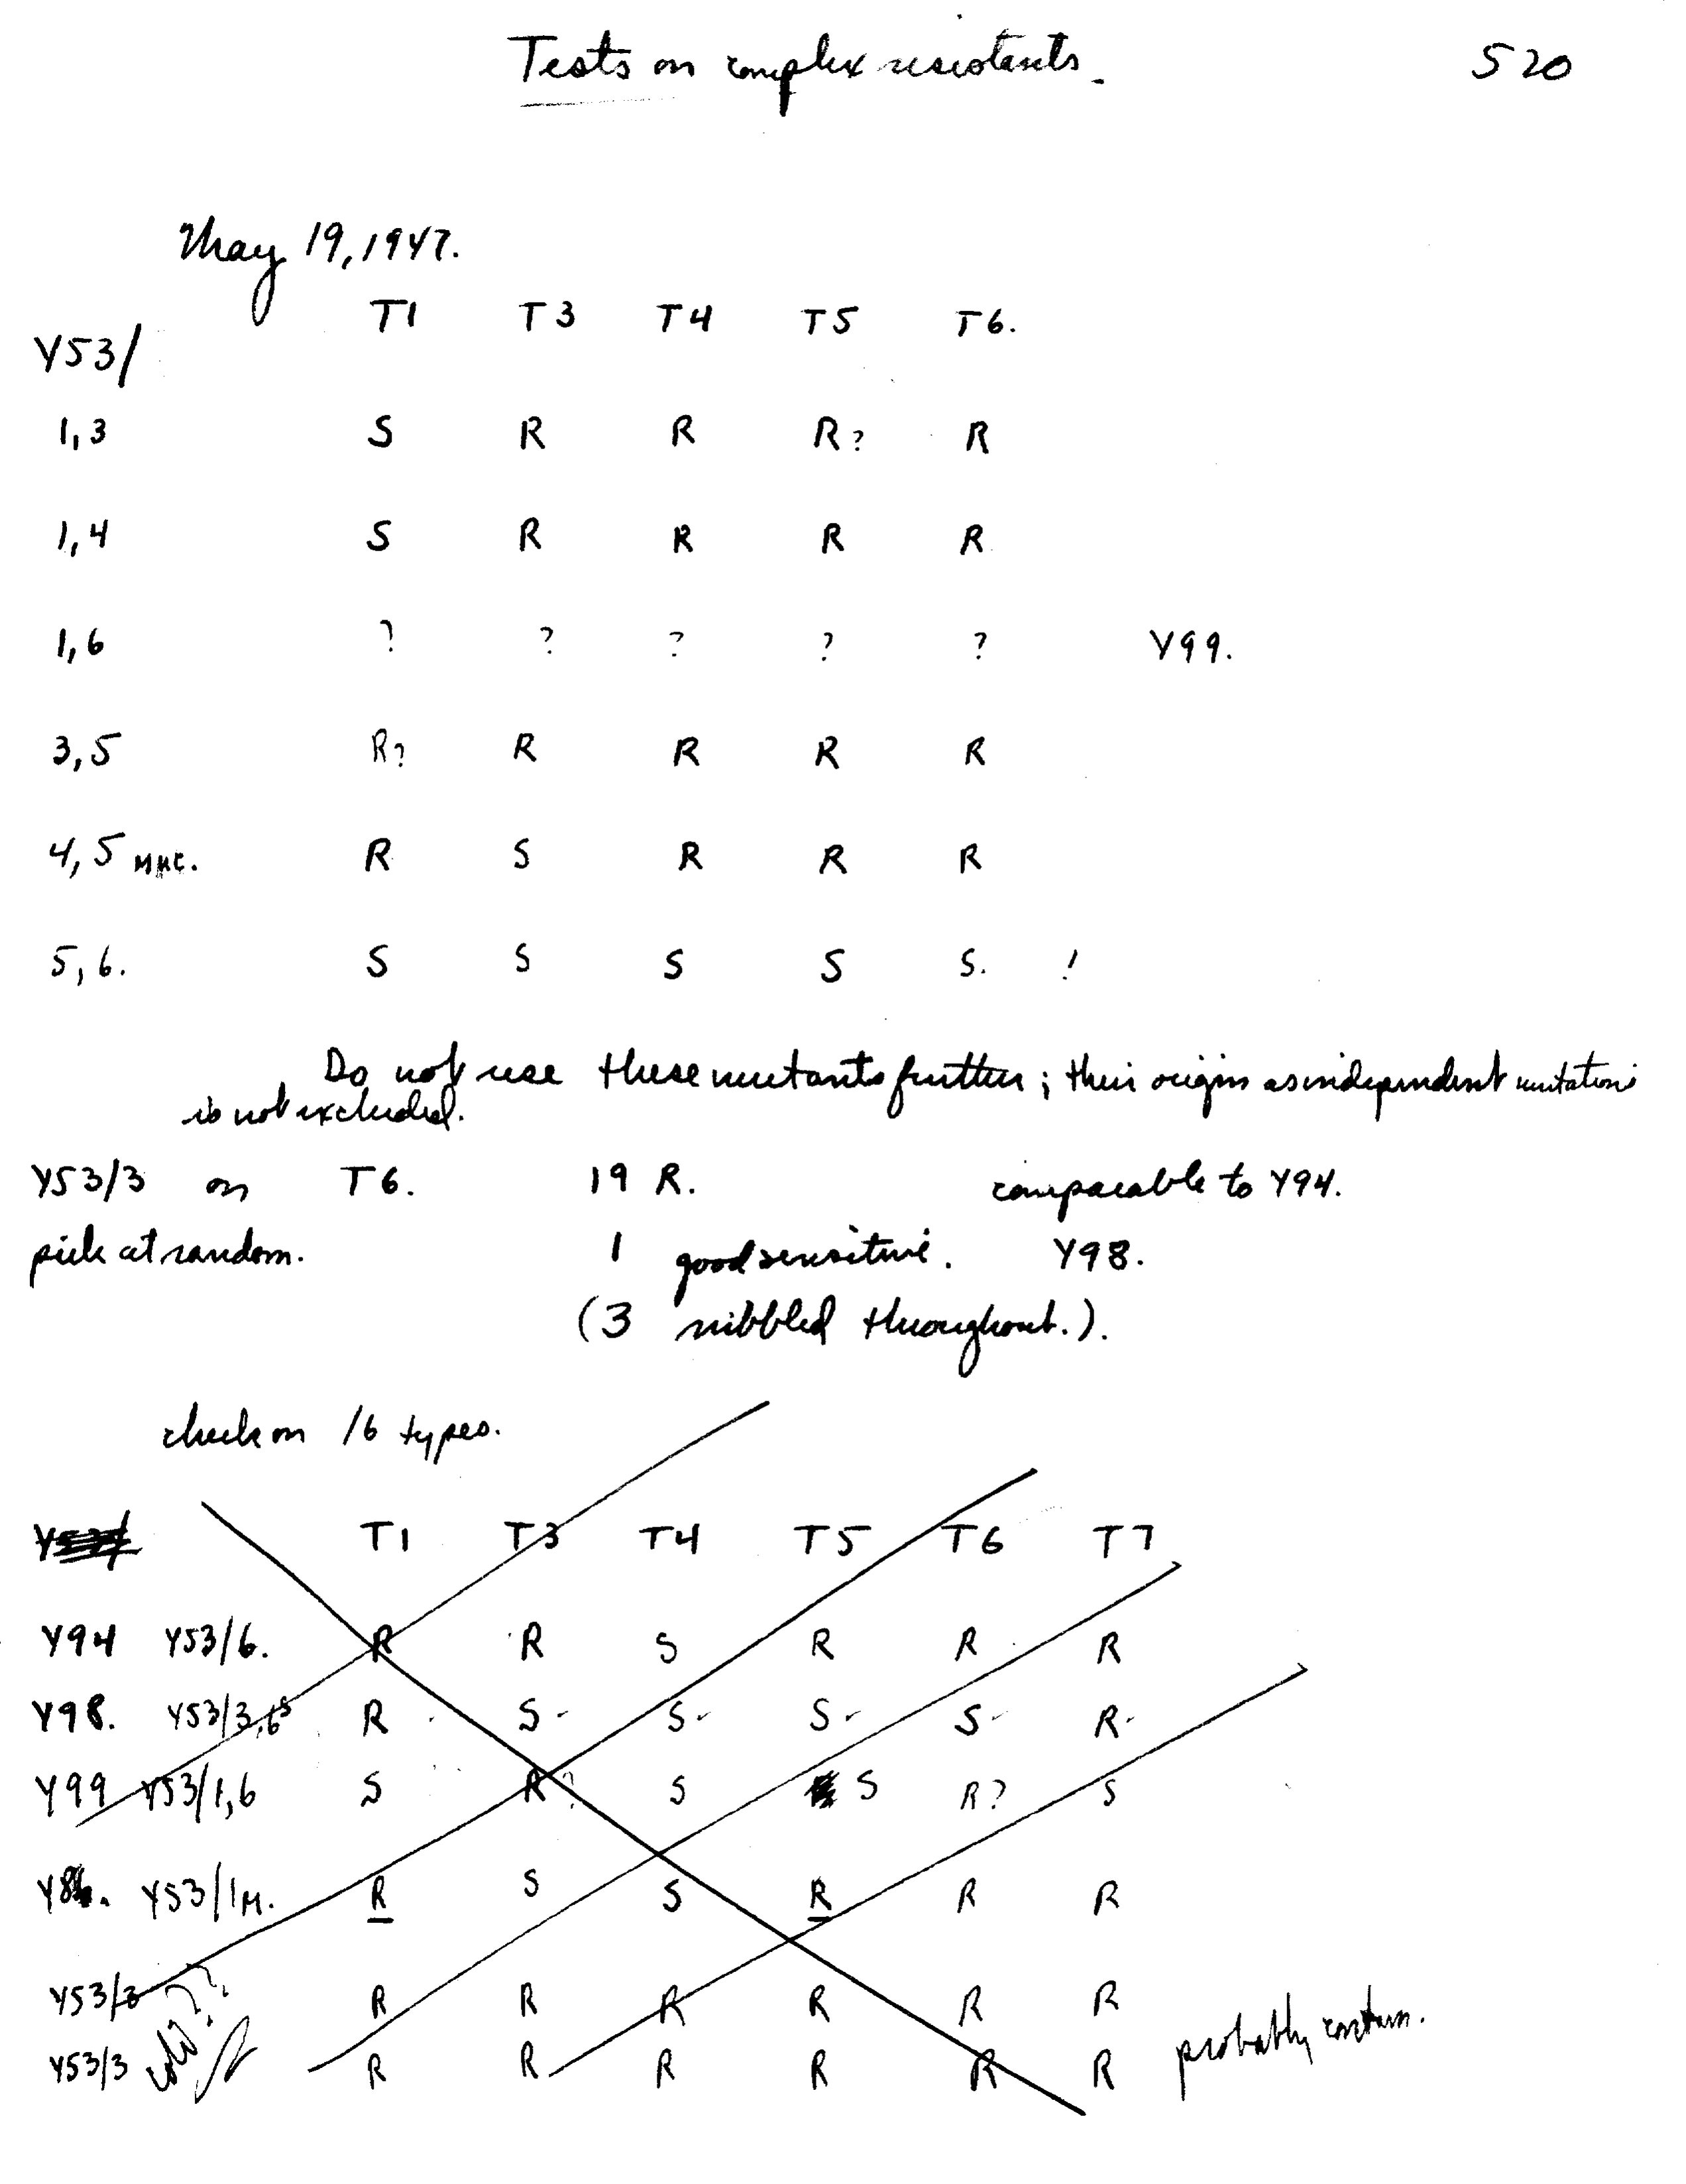 Tests on complex resistants. 520
May 19, 1947.
T1 T3 T4 T5 T6.
Y53/
1,3 S R R R? R
1,4 S R R R R
1,6 ? ? ? ? ? Y99.
3,5 R? R R R R
4,5 R S R R R
5,6. S S S S S. !
Do not use these mutants further; their origin as independent mutations
is not excluded.
Y53/3 on T6. 19 R. comparable to Y94.
pick at random. 1 good sensitive. Y98.
(3 nibbled throughout.).
check on /6 types.
T1 T3 T4 T5 T6 T7
Y94 Y53/6. R R S R R R
Y98. Y53/3,6s R S- S- S- S- R-
Y99 Y53/1,6 S R? S S R? S
Y53/1M. R S S R R R
Y53/3 ?? R R R R R R
Y53/3 coli? R R R R R R probably contam.